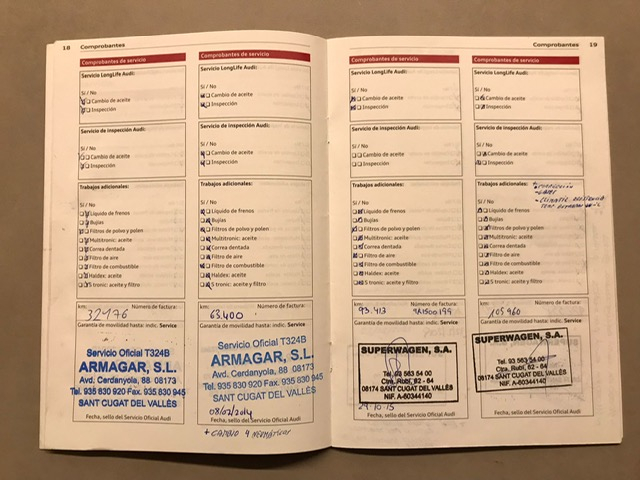 18 Comprobantes
Comprobantes de servicio
Servicio LongLife Audi:
Sí / No
Cambio de aceite
Inspección
Servicio de inspección Audi:
Sí / No
Cambio de aceite
Inspección
Trabajos adicionales:
Sí / No
Líquido de frenos
Bujías
Filtros de polvo y polen
Multitronic: aceite
Correa dentada
Filtro de aire
Filtro de combustible
Haldex: aceite
S tronic: aceite y filtro
km: Número de factura:
32476
Garantía de movilidad hasta: indic. Service
Servicio Oficial T324B
ARMAGAR, S.L.
Avd. Cerdanyola, 88 08173
Tel. 935 830 920 Fax. 935 830 945
SANT CUGAT DEL VALLÉS
Fecha, sello del Servicio Oficial Audi
Comprobantes de servicio
Servicio LongLife Audi:
Sí / No
Cambio de aceite
Inspección
Servicio de inspección Audi:
Sí / No
Cambio de aceite
Inspección
Trabajos adicionales:
Sí / No
Líquido de frenos
Bujías
Filtros de polvo y polen
Multitronic: aceite
Correa dentada
Filtro de aire
Filtro de combustible
Haldex: aceite
S tronic: aceite y filtro
km: Número de factura:
63.400
Garantía de movilidad hasta: indic. Service
Servicio Oficial T324B
ARMAGAR, S.L.
Avd. Cerdanyola, 88 08173
Tel. 935 830 920 Fax. 935 830 945
SANT CUGAT DEL VALLÉS
08/02/2014
Fecha, sello del Servicio Oficial Audi
+ CAMBIO 4 NEUMÁTICOS
Comprobantes 19
Comprobantes de servicio
Servicio LongLife Audi:
Sí / No
Cambio de aceite
Inspección
Servicio de inspección Audi:
Sí / No
Cambio de aceite
Inspección
Trabajos adicionales:
Sí / No
Líquido de frenos
Bujías
Filtros de polvo y polen
Multitronic: aceite
Correa dentada
Filtro de aire
Filtro de combustible
Haldex: aceite
S tronic: aceite y filtro
km: Número de factura:
93.413
Garantía de movilidad hasta: indic. Service
SUPERWAGEN, S.A.
Tel. 93 563 54 00
Ctra. Rubí, 62 - 64
08174 SANT CUGAT DEL VALLÈS
NIF. A-60344140
29-10-15
Fecha, sello del Servicio Oficial Audi
Comprobantes de servicio
Servicio LongLife Audi:
Sí / No
Cambio de aceite
Inspección
Servicio de inspección Audi:
Sí / No
Cambio de aceite
Inspección
Trabajos adicionales:
Sí / No
Líquido de frenos
Bujías
Filtros de polvo y polen
Multitronic: aceite
Correa dentada
Filtro de aire
Filtro de combustible
Haldex: aceite
S tronic: aceite y filtro
km: Número de factura:
105 960
Garantía de movilidad hasta: indic. Service
SUPERWAGEN, S.A.
Tel. 93 563 54 00
Ctra. Rubí, 62 - 64
08174 SANT CUGAT DEL VALLÈS
NIF. A-60344140
Fecha, sello del Servicio Oficial Audi